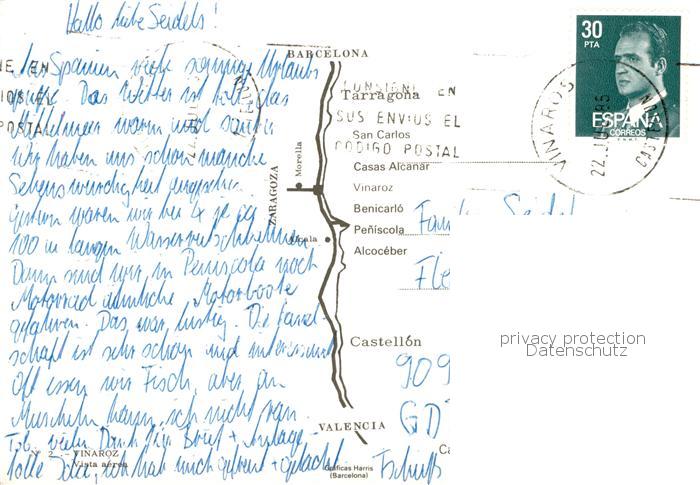 Hallo liebe Seidels!
Aus Spanien viele sonnige Urlaubs
grüße. Das Wetter ist toll, das
Mittelmeer warm und sauber
Wir haben uns schon manche
Sehenswürdigkeit angesehen
Gestern waren wir bei
100 m langen Wasserrutschbahnen
Dann sind wir in Peniscola noch
Motorrad ähnliche Motorboote
gefahren. Das war lustig. Die Land-
schaft ist sehr schön und interessant
Oft essen wir Fisch, aber an
Muscheln kann ich nicht ran.
vielen Dank für Brief + Anlage
Tolle Idee, ich hab mich gefreut + gelacht
Tschüß
N.º 2. - VINAROZ
Vista aérea
BARCELONA
Tarragona
San Carlos
Casas Alcanar
Vinaroz
Benicarló
Peñíscola
Alcocéber
Castellón
VALENCIA
ZARAGOZA
Morella
Alcala
Gráficas Harris
(Barcelona)
CONSIGNE EN
SUS ENVIOS EL
CODIGO POSTAL
NE EN
IOS EL
POSTAL
30
PTA
ESPAÑA
CORREOS
VINAROS
22.JUL.85
909
GD
privacy protection
Datenschutz